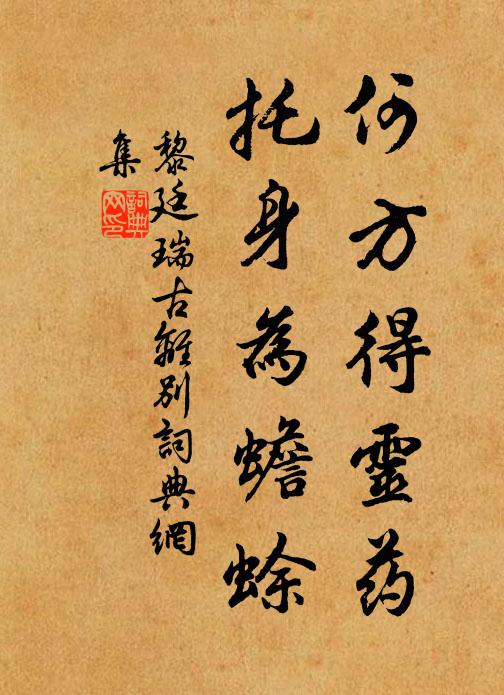 何方得靈药
托身為蟾蜍
黎廷瑞古離别詞典網
集
詞典網印